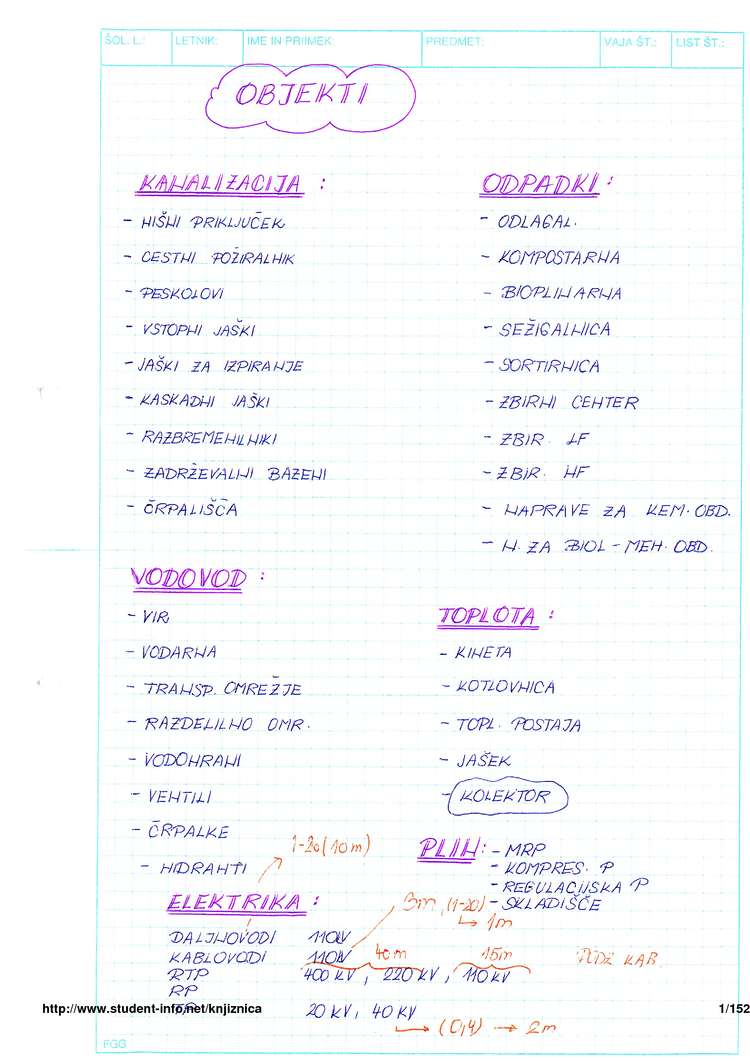 ŠOL. L.: LETNIK: IME IN PRIIMEK: PREDMET: VAJA ŠT.: LIST ŠT.:
OBJEKTI
KANALIZACIJA :
- HIŠNI PRIKLJUČEK
- CESTNI POŽIRALNIK
- PESKOLOVI
- VSTOPNI JAŠKI
- JAŠKI ZA IZPIRANJE
- KASKADNI JAŠKI
- RAZBREMENILNIKI
- ZADRŽEVALNI BAZENI
- ČRPALIŠČA
ODPADKI :
- ODLAGAL.
- KOMPOSTARNA
- BIOPLINARNA
- SEŽIGALNICA
- SORTIRNICA
- ZBIRNI CENTER
- ZBIR. LF
- ZBIR. NF
- NAPRAVE ZA KEM. OBD.
- N. ZA BIOL - MEH. OBD.
VODOVOD :
- VIR
- VODARNA
- TRANSP. OMREŽJE
- RAZDELILNO OMR.
- VODOHRANI
- VENTILI
- ČRPALKE
- HIDRANTI
1-20 (10m)
TOPLOTA :
- KINETA
- KOTLOVNICA
- TOPL. POSTAJA
- JAŠEK
- KOLEKTOR
PLIN :
- MRP
- KOMPRES. P
- REGULACIJSKA P
- SKLADIŠČE
ELEKTRIKA :
3m (1-20)
↳ 1m
DALJNOVODI 110kV
KABLOVODI 110kV 40m 15m
RTP 400 KV, 220 KV, 110 KV
RP
TP 20 KV, 40 KV
→ (0,4) → 2m
http://www.student-info.net/knjiznica
1/152
FGG